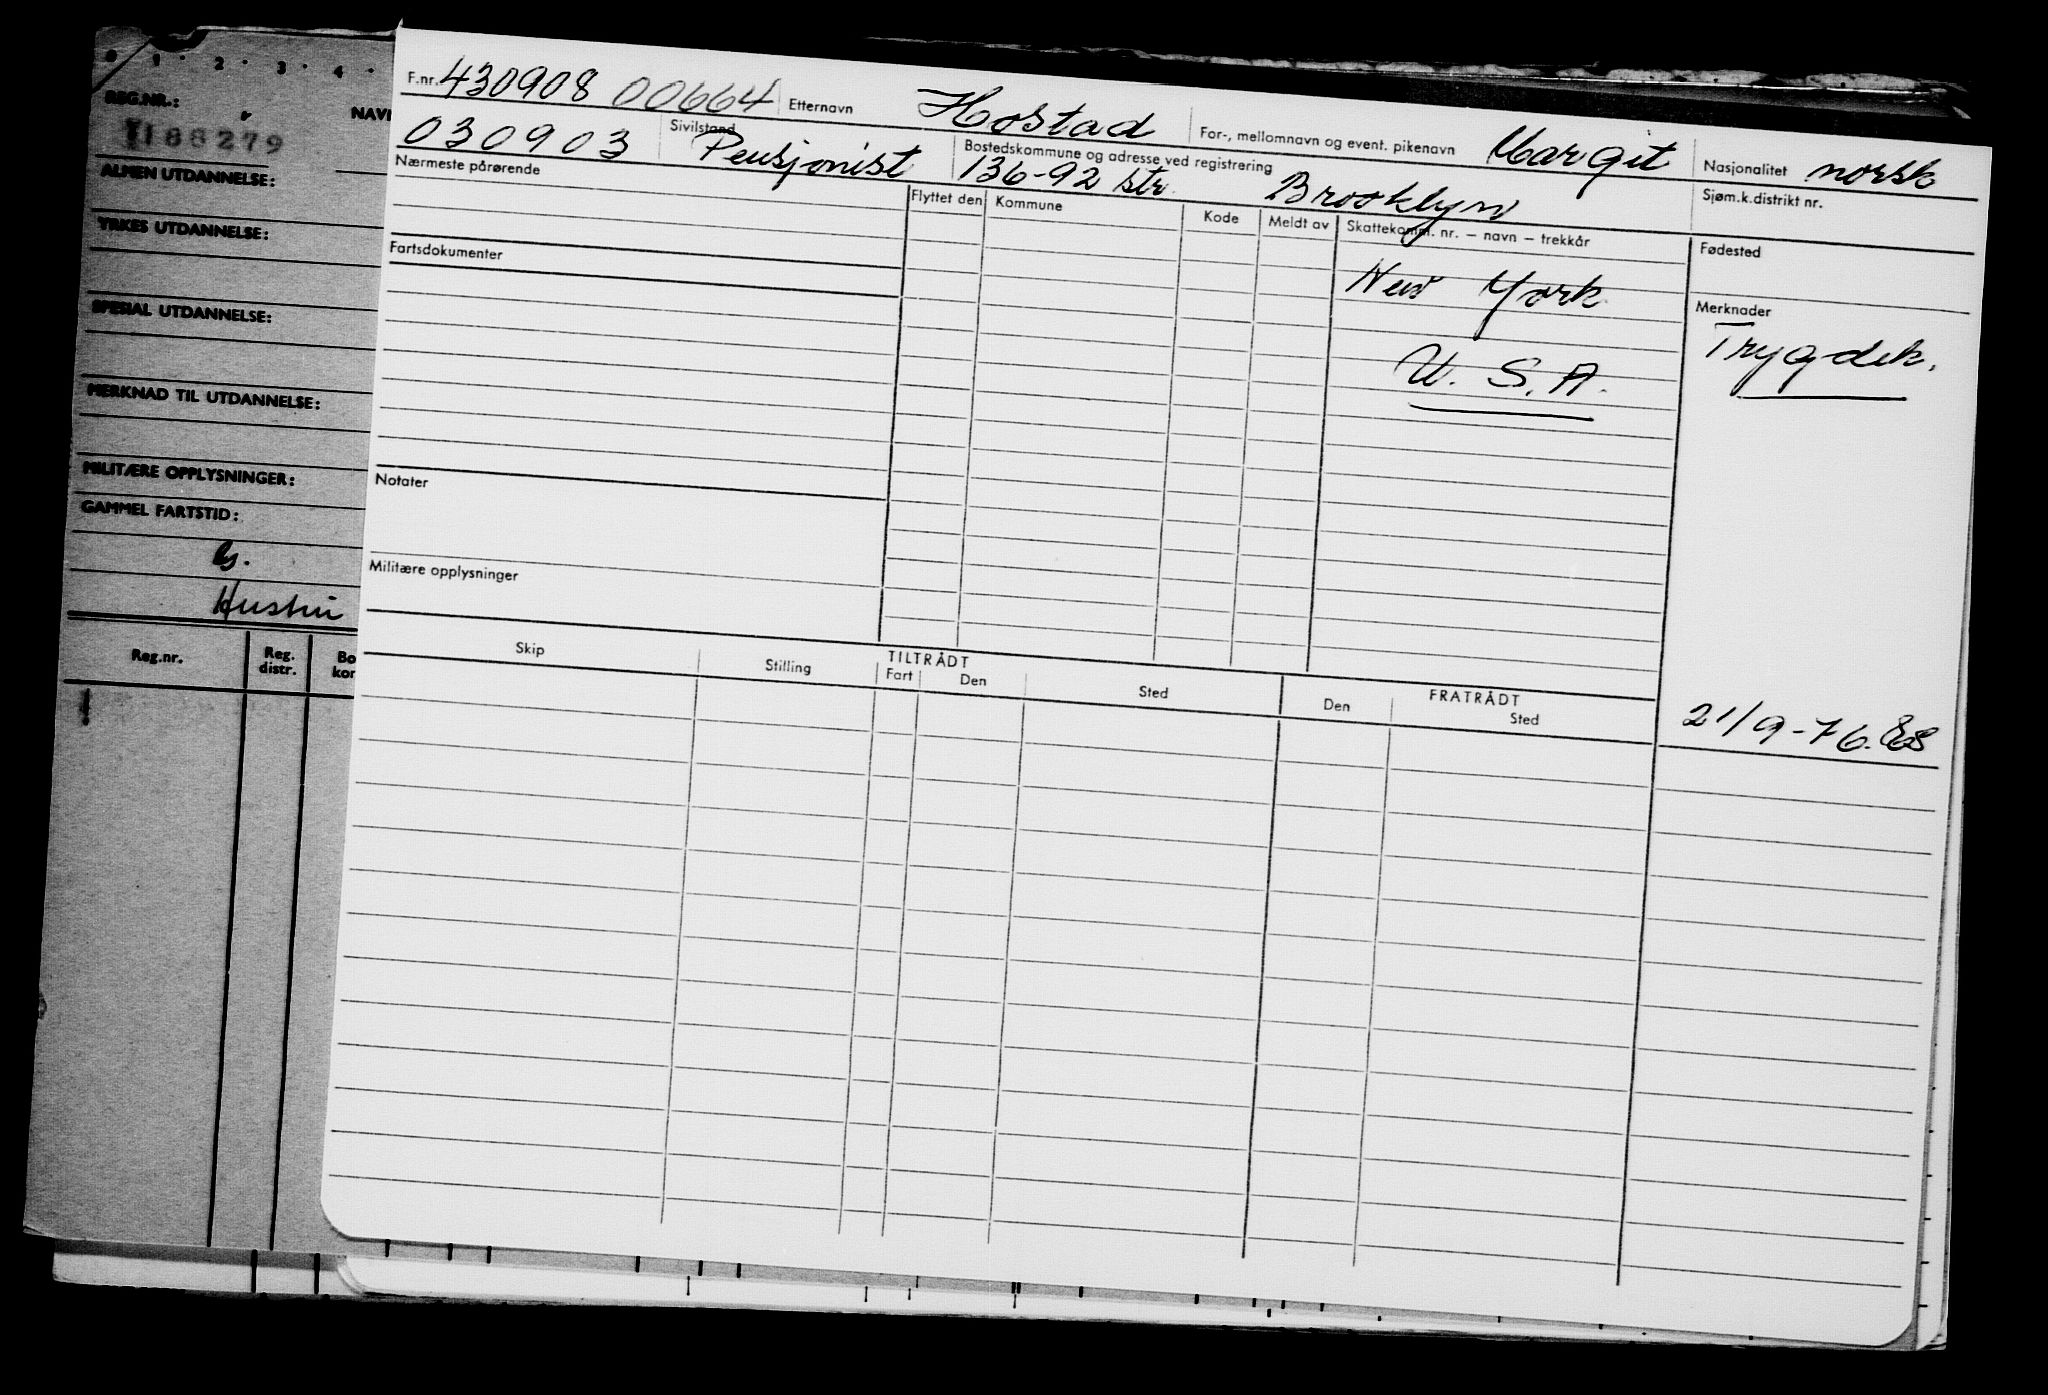 0 1 2 3 4
REG.NR.: NAVN
188279
ALMEN UTDANNELSE:
YRKES UTDANNELSE:
SPESIAL UTDANNELSE:
MERKNAD TIL UTDANNELSE:
MILITÆRE OPPLYSNINGER:
GAMMEL FARTSTID:
Reg.nr. Reg. distr.
F.nr. 430908 00664 Etternavn Hostad For-, mellomnavn og event. pikenavn Margit Nasjonalitet norsk
030903 Sivilstand Pensjonist Bostedskommune og adresse ved registrering 136-92 str. Brooklyn Sjøm.k.distrikt nr.
Nærmeste pårørende Flyttet den Kommune Kode Meldt av Skattekomm. nr. – navn – trekkår Fødested
Fartsdokumenter New York Merknader
U.S.A. Trygdek.
Notater
Militære opplysninger
Skip Stilling TILTRÅDT Fart Den Sted FRATRÅDT Den Sted
21/9-76.